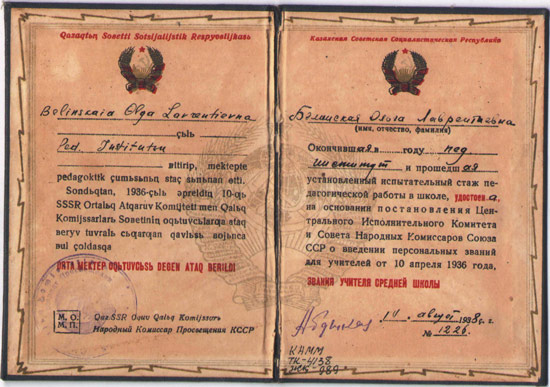 Qazaqtьq Sovetti Sotsijalijstik Respyvblijkasь
Belinskaia Olga Lavrentievna
çьlь
Ped. Institutu
вttirip, mektepte
pedagogtik çumьsьnьq staç aьnьnan өtti.
Sondьqtan, 1936-çьlь əpreldiq 10-qь
SSSR Ortalьq Atqaruv Komijteti men Qalьq
Komijssarlarь Sovetiniq oqьtuvcьlarqa ataq
beryv tuvralь cьqarqan qavlьsь bojьnca
bul çoldasqa
ORTA MEKTEP OQЬTUVCЬSЬ DEGEN ATAQ BERILDI
M. O.
M. П.
Qaz.SSR Oquv Qalьq Komijssarь
Народный Комиссар Просвещения КССР
Казахская Советская Социалистическая Республика
Белинская Ольга Лаврентьевна
(имя, отчество, фамилия)
Окончившая в году пед
институт и прошедшая
установленный испытательный стаж педагогической работы в школе, удостоена,
на основании постановления Центрального Исполнительного Комитета
и Совета Народных Комиссаров Союза
ССР о введении персональных званий
для учителей от 10 апреля 1936 года,
ЗВАНИЯ УЧИТЕЛЯ СРЕДНЕЙ ШКОЛЫ
14 август 1938 г.
№ 1226.
КАММ
ТК-4138